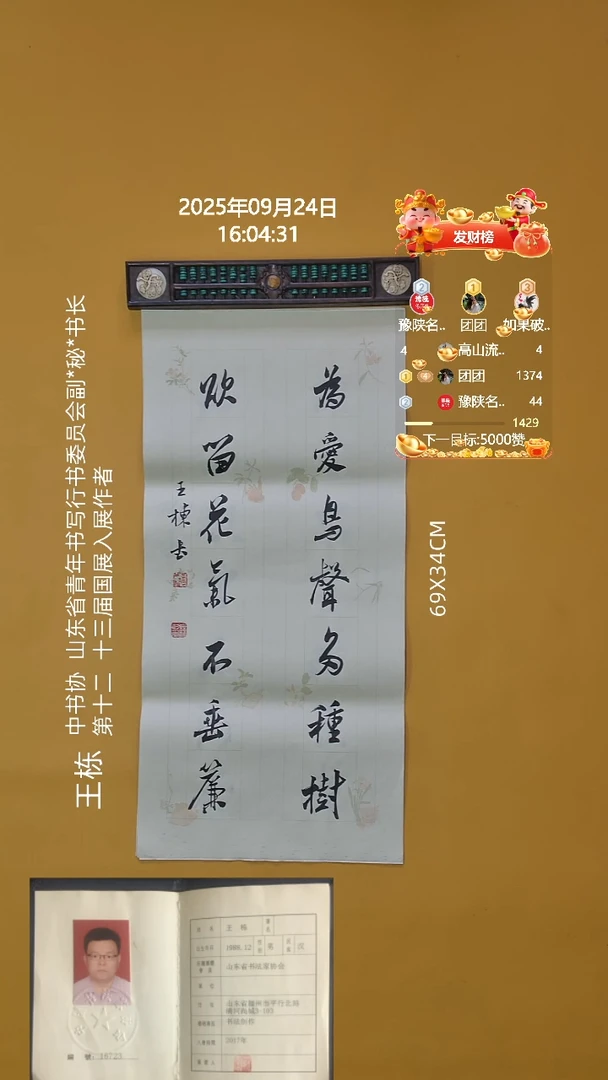 2025年09月24日
16:04:31
发财榜
豫陕名..
团团
如果破..
4 高山流.. 4
1 团团 1374
2 豫陕名.. 44
1429
下一目标:5000赞
為愛鳥聲多種樹
欲留花氣不垂簾
王棟書
69X34CM
王栋
中书协 山东省青年书写行书委员会副*秘*书长
第十二 十三届国展入展作者
王栋
1986.12
男
汉
山东省书法家协会
2017年